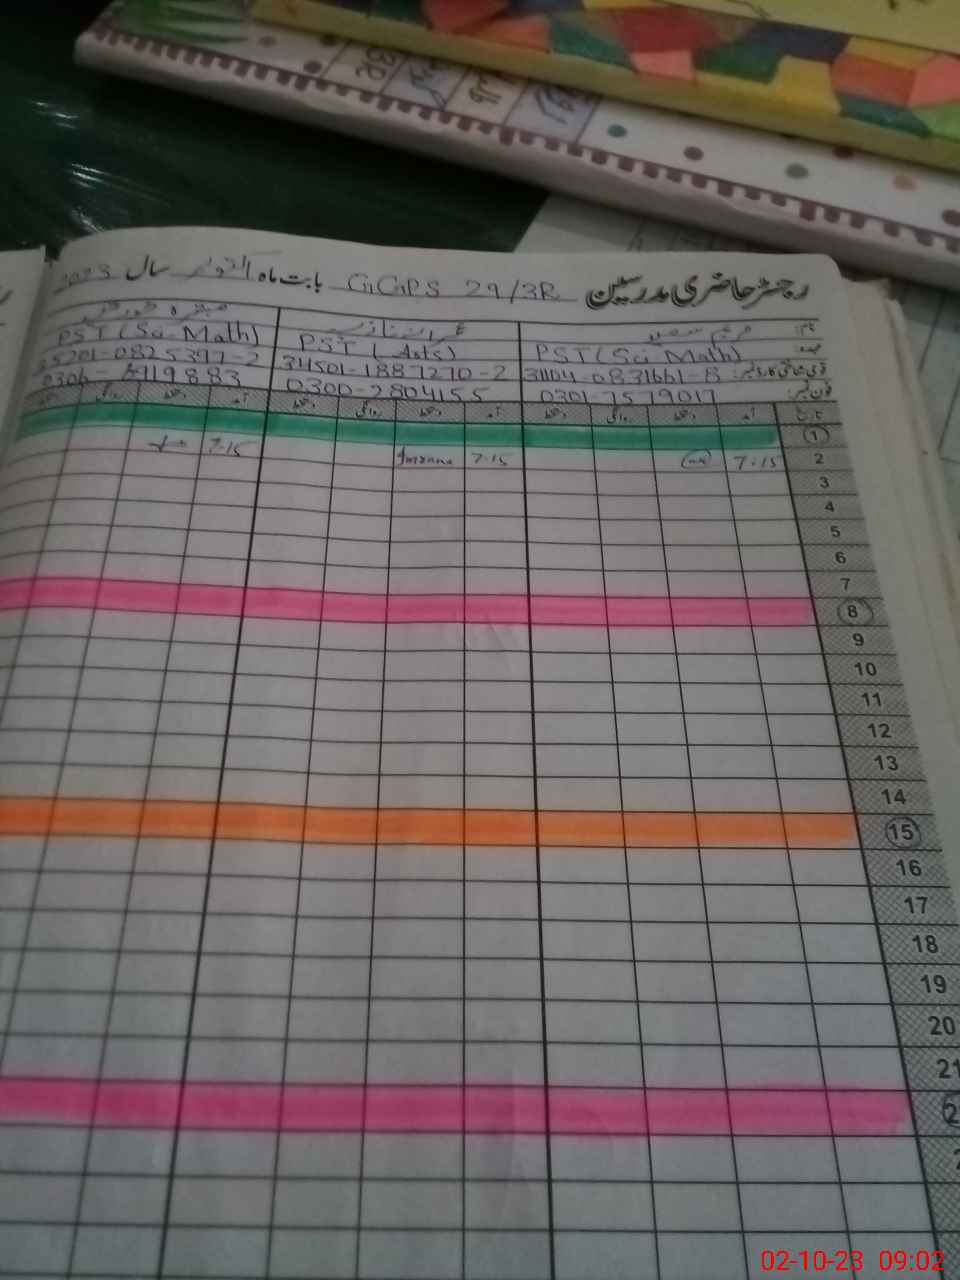 رجسٹر حاضری مدرسین GGPS 29/3R بابت ماہ اکتوبر سال 2023
نام:
عہدہ: PST (Sci Math) PST (Arts) PST (Sci. Math)
قومی شناختی کارڈ نمبر: 31104-0831661-8 34501-1887270-2 35201-0825397-2
فون نمبر: 0301-7579017 0300-2804155 0306-
تاریخ آمد دستخط روانگی دستخط آمد دستخط روانگی دستخط آمد دستخط روانگی دستخط
1
2 7:15 7:15 Imrana 7:15
3
4
5
6
7
8
9
10
11
12
13
14
15
16
17
18
19
20
21
2
02-10-23 09:02